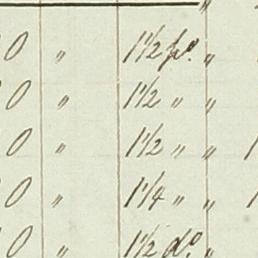 0 " 1 1/2 po. "
0 " 1 1/2 " "
0 " 1 1/2 " " 1
0 " 1 1/4 " " 1
0 " 1 1/2 do. "